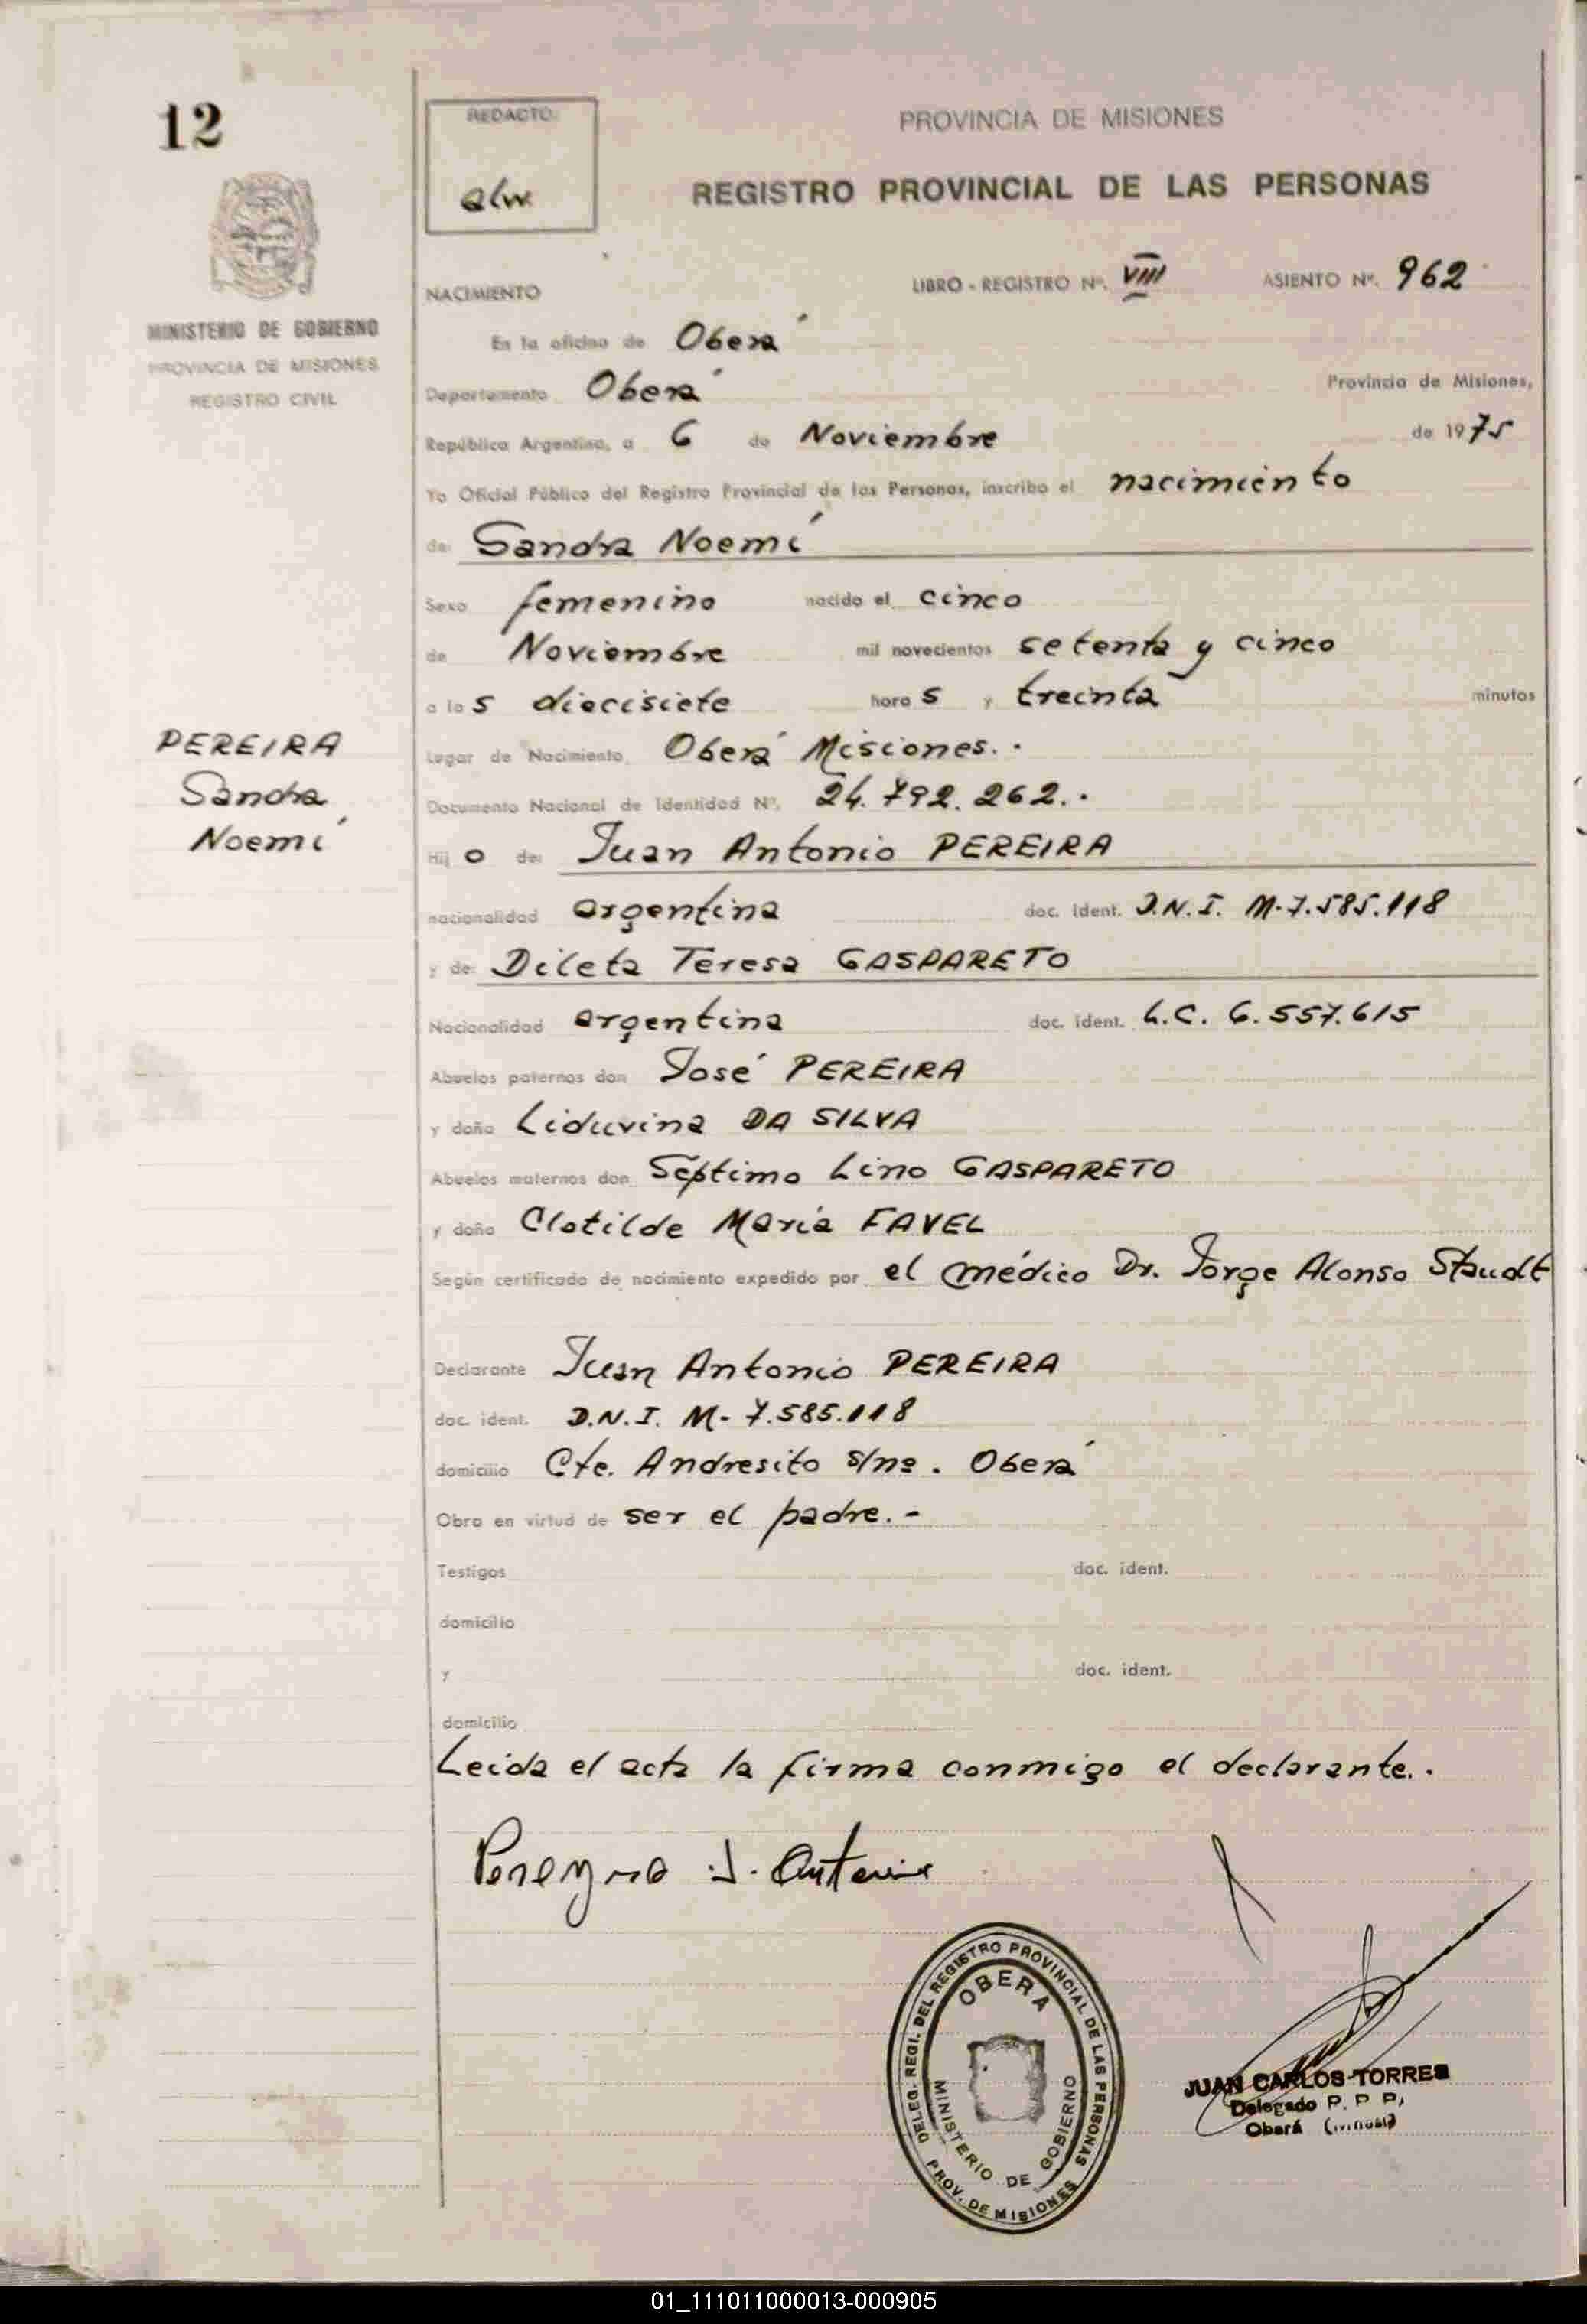 12
REDACTO
alw
PROVINCIA DE MISIONES
REGISTRO PROVINCIAL DE LAS PERSONAS
MINISTERIO DE GOBIERNO
PROVINCIA DE MISIONES
REGISTRO CIVIL
NACIMIENTO LIBRO - REGISTRO Nº. VIII ASIENTO Nº. 962
En la oficina de Oberá
Departamento Oberá Provincia de Misiones,
República Argentina, a 6 de Noviembre de 1975
Yo Oficial Público del Registro Provincial de las Personas, inscribo el nacimiento
de: Sandra Noemí
Sexo femenino nacido el cinco
de Noviembre mil novecientos setenta y cinco
a las diecisiete horas y treinta minutos
Lugar de Nacimiento Oberá Misiones. .
Documento Nacional de Identidad Nº. 24.792.262. .
PEREIRA
Sandra
Noemí
Hijo de: Juan Antonio PEREIRA
nacionalidad argentina doc. ident. D.N.I. M-7.585.118
y de: Dileta Teresa GASPARETO
Nacionalidad argentina doc. ident. L.C. 6.557.615
Abuelos paternos don José PEREIRA
y doña Liduvina DA SILVA
Abuelos maternos don Séptimo Lino GASPARETO
y doña Clotilde María FAVEL
Según certificado de nacimiento expedido por el médico Dr. Jorge Alonso Staudt
Declarante Juan Antonio PEREIRA
doc. ident. D.N.I. M-7.585.118
domicilio Cte. Andresito s/nº. Oberá
Obra en virtud de ser el padre.-
Testigos doc. ident.
domicilio
y doc. ident.
domicilio
Leida el acta la firma conmigo el declarante. .
Pereyra J. Antonio
DELEG. REGI. DEL REGISTRO PROVINCIAL DE LAS PERSONAS
OBERA
MINISTERIO DE GOBIERNO
PROV. DE MISIONES
JUAN CARLOS TORRES
Delegado P. P P,
Oberá
01_111011000013-000905